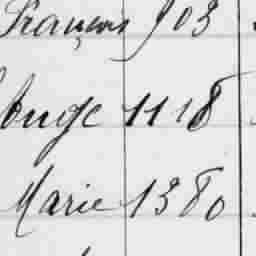 François 903
buge 1118
Marie 1380